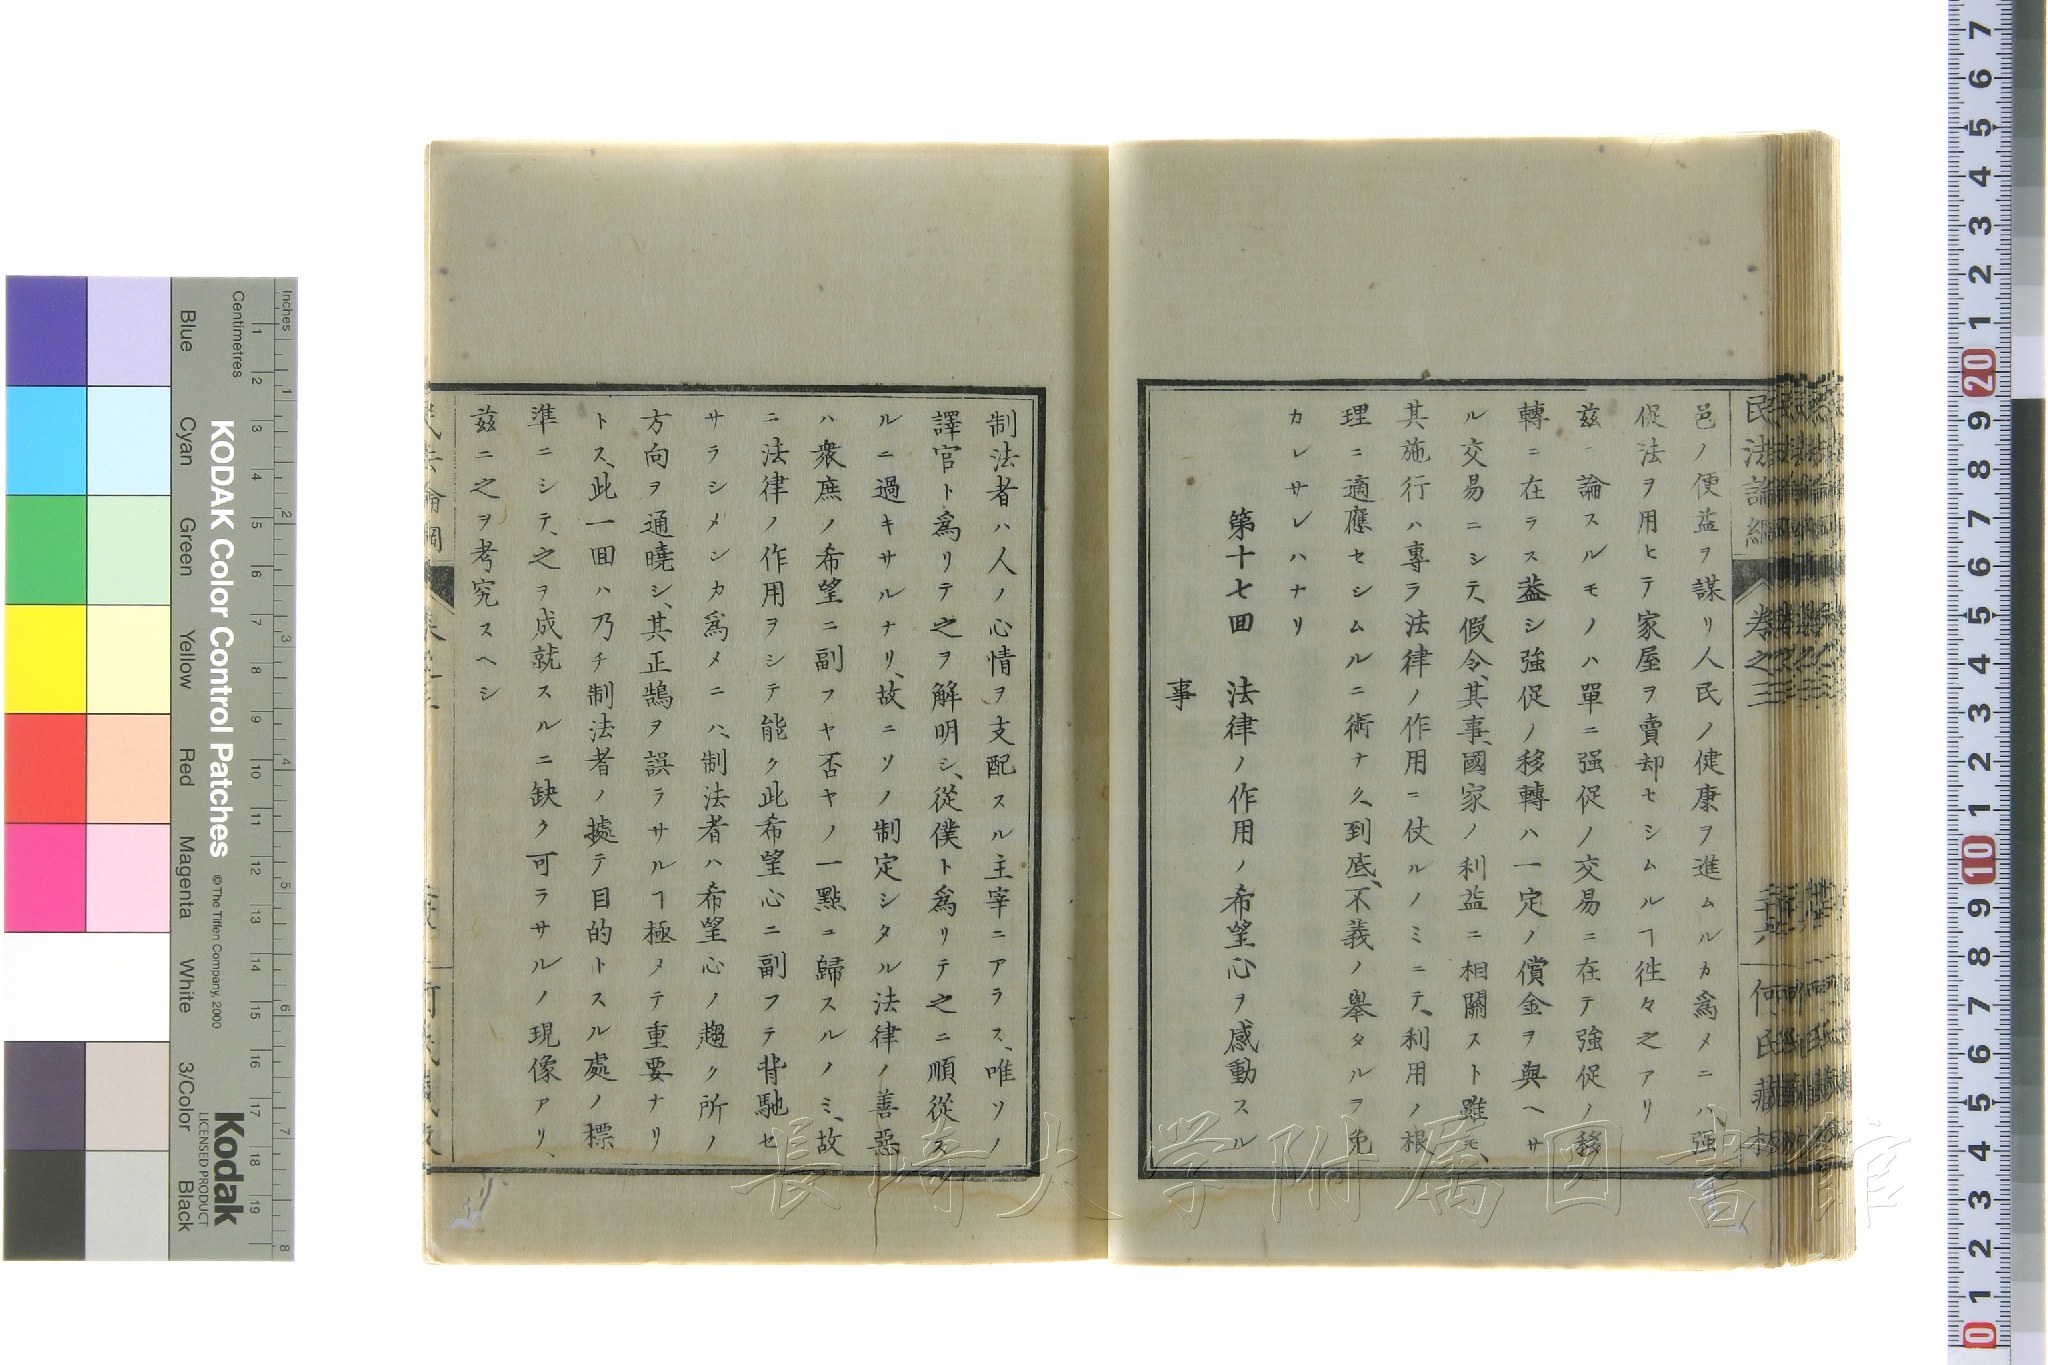 民法論綱 卷之三 何氏藏梓
邑ノ便益ヲ謀リ人民ノ健康ヲ進ムルカ爲メニハ、强
促法ヲ用ヒテ家屋ヲ賣却セシムルヿ徃々之アリ
玆ニ論スルモノハ單ニ强促ノ交易ニ在テ強促ノ移
轉ニ在ラス葢シ強促ノ移轉ハ一定ノ償金ヲ與ヘサ
ル交易ニシテ、假令、其事、國家ノ利益ニ相關スト雖モ、
其施行ハ專ラ法律ノ作用ニ仗ルノミニテ、利用ノ根
理ニ適應セシムルニ術ナク、到底、不義ノ擧タルヲ免
カレサレハナリ
第十七回 法律ノ作用ノ希望心ヲ感動スル
事
制法者ハ人ノ心情ヲ支配スル主宰ニアラス、唯ソノ
譯官ト爲リテ之ヲ解明シ、從僕ト爲リテ之ニ順從ス
ルニ過キサルナリ、故ニソノ制定シタル法律ノ善惡
ハ衆庶ノ希望ニ副フヤ否ヤノ一點ニ歸スルノミ、故
ニ法律ノ作用ヲシテ能ク此希望心ニ副フテ背馳セ
サラシメンカ爲メニハ、制法者ハ希望心ノ趨ク所ノ
方向ヲ通曉シ、其正鵠ヲ誤ラサルヿ極メテ重要ナリ
トス、此一回ハ乃チ制法者ノ據テ目的トスル處ノ標
準ニシテ、之ヲ成就スルニ缺ク可ラサルノ現像アリ、
玆ニ之ヲ考究スヘシ
長崎大学附属図書館
KODAK Color Control Patches
© The Tiffen Company, 2000
Kodak
LICENSED PRODUCT
Inches
Centimetres
Blue
Cyan
Green
Yellow
Red
Magenta
White
3/Color
Black